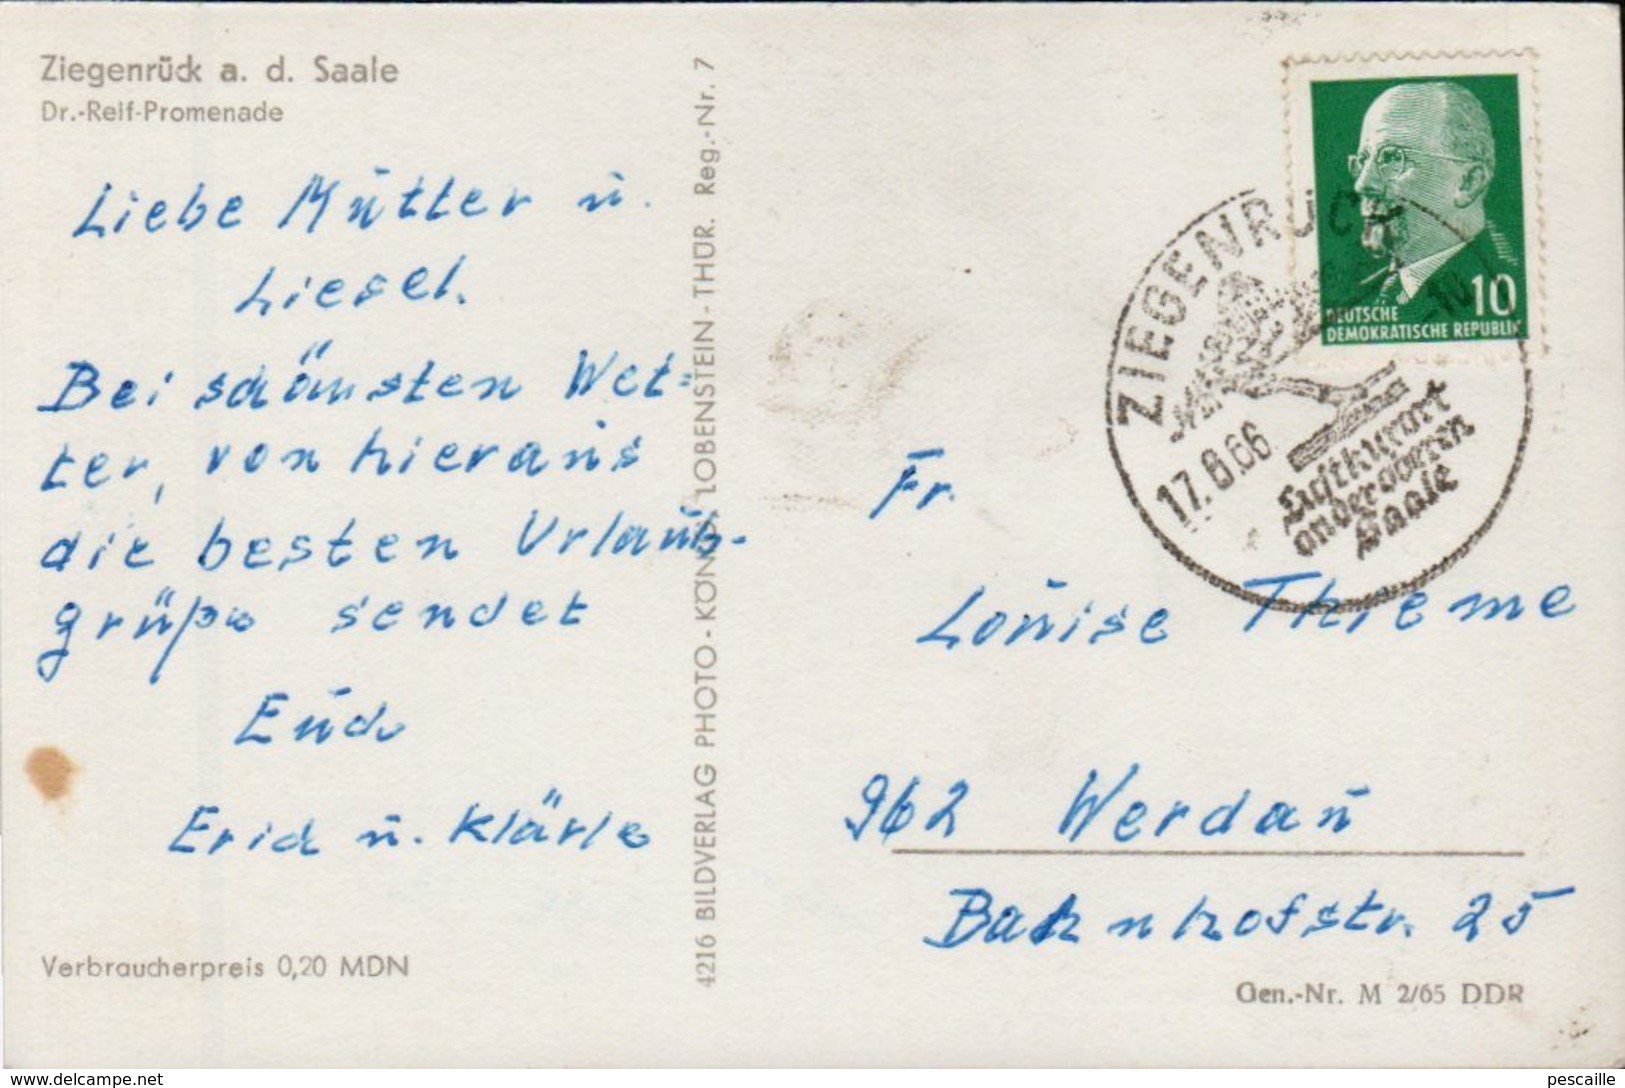 Ziegenrück a. d. Saale
Dr.-Relf-Promenade
Liebe Mutter u.
Liesel.
Bei schönsten Wet=
ter, von hieraus
die besten Urlaub-
grüße sendet
Euch
Erich u. Klärle
Verbraucherpreis 0,20 MDN
4216 BILDVERLAG PHOTO-KÖNIG, LOBENSTEIN-THÜR. Reg.-Nr. 7
10
DEUTSCHE
DEMOKRATISCHE REPUBLIK
ZIEGENRÜCK
17.8.66
Luftkurort
an der oberen
Saale
Fr.
Louise Thieme
962 Werdau
Bahnhofstr. 25
Gen.-Nr. M 2/65 DDR
www.delcampe.net
pescaille